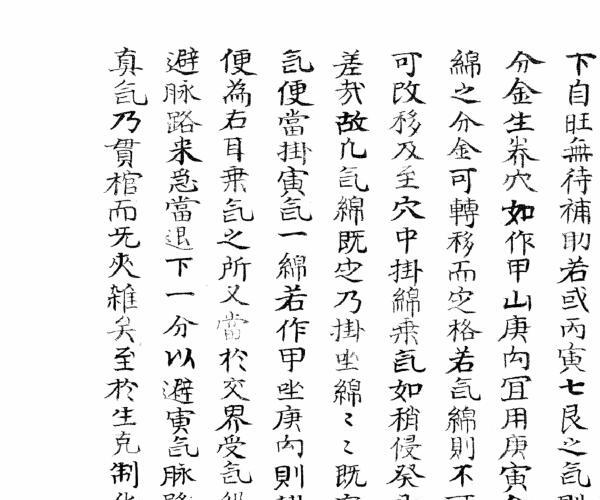 下自旺無待補助若或丙寅七艮之氣則
分金生养穴如作甲山庚向宜用庚寅
綿之分金可轉移而定格若氣綿則不可
可改移及至穴中掛綿乗氣如稍侵癸
差㢤故凡氣綿既定乃掛坐綿〻〻既定
氣便當掛寅氣一綿若作甲坐庚向則掛
便為右耳乗氣之所又當於交界受氣
避脉路来急當退下一分以避寅氣脉路
真氣乃貫棺而旡夾雑矣至於生克制化